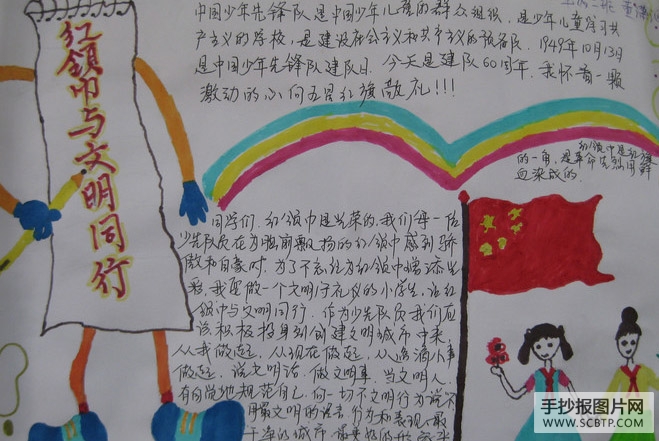 红领巾与文明同行
中国少年先锋队是中国少年儿童的群众组织,是少年儿童学习共
产主义的学校,是建设社会主义和共产主义的预备队.1949年10月13日
是中国少年先锋队建队日.今天是建队60周年.我怀着一颗
激动的心向五星红旗敬礼!!!
红领巾是红旗
的一角,是革命先烈用鲜
血染成的.
同学们.红领巾是光荣的,我们每一位
少先队员在为胸前飘扬的红领巾感到骄
傲和自豪时.为了不忘红为红领巾增添光
彩,我要做一个文明守礼仪的小学生,让红
领巾与文明同行.作为少先队员我们应
该积极投身到创建文明城市中来.
从我做起,从现在做起,从点滴小事
做起,说文明话.做文明事.当文明人.
有自觉地规范自己.向一切不文明行为说不
用最文明的语言 行为和表现.最
干净的城市
手抄报图片网
WWW.SCBTP.COM